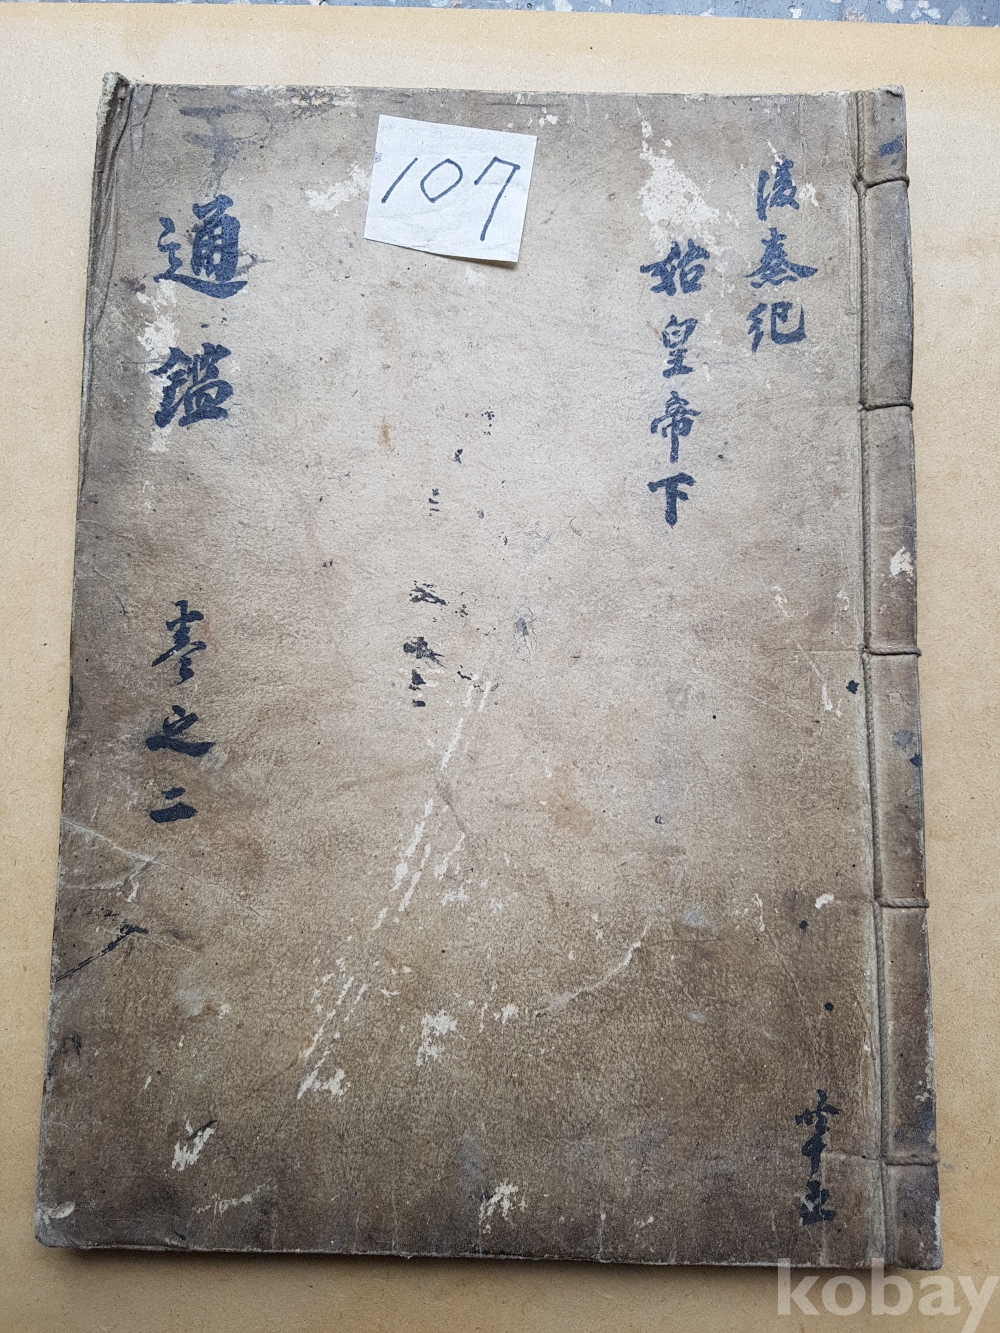 後秦紀
始皇帝下
107
通鑑 卷之二
kobay